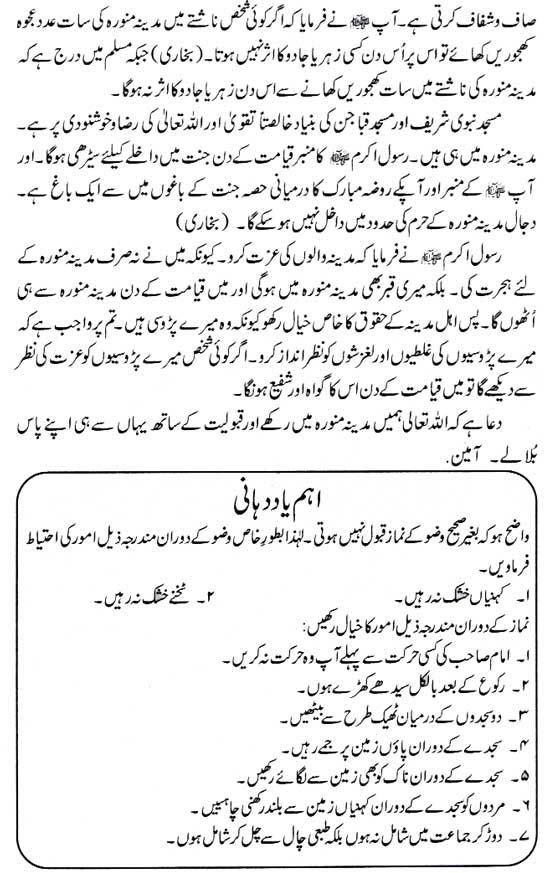 صاف و شفاف کرتی ہے۔ آپ ﷺ نے فرمایا کہ اگر کوئی شخص ناشتے میں مدینہ منورہ کی سات عدد عجوہ
کھجوریں کھائے تو اس پر اُس دن کسی زہر یا جادو کا اثر نہیں ہوتا۔ (بخاری) جبکہ مسلم میں درج ہے کہ
مدینہ منورہ کی ناشتے میں سات کھجوریں کھانے سے اس دن زہر یا جادو کا اثر نہ ہوگا۔
مسجد نبوی شریف اور مسجد قبا جن کی بنیاد خالصتاً تقویٰ اور اللہ تعالیٰ کی رضا و خوشنودی پر ہے۔
مدینہ منورہ میں ہی ہیں۔ رسول اکرم ﷺ کا منبر قیامت کے دن جنت میں داخلے کیلئے سیڑھی ہوگا۔ اور
آپ ﷺ کے منبر اور آپکے روضہ مبارک کا درمیانی حصہ جنت کے باغوں میں سے ایک باغ ہے۔
دجال مدینہ منورہ کے حرم کی حدود میں داخل نہیں ہو سکے گا۔ (بخاری)
رسول اکرم ﷺ نے فرمایا کہ مدینہ والوں کی عزت کرو۔ کیونکہ میں نے نہ صرف مدینہ منورہ کے
لئے ہجرت کی۔ بلکہ میری قبر بھی مدینہ منورہ میں ہوگی اور میں قیامت کے دن مدینہ منورہ سے ہی
اُٹھوں گا۔ پس اہل مدینہ کے حقوق کا خاص خیال رکھو کیونکہ وہ میرے پڑوسی ہیں۔ تم پر واجب ہے کہ
میرے پڑوسیوں کی غلطیوں اور لغزشوں کو نظر انداز کرو۔ اگر کوئی شخص میرے پڑوسیوں کو عزت کی نظر
سے دیکھے گا تو میں قیامت کے دن اس کا گواہ اور شفیع ہونگا۔
دعا ہے کہ اللہ تعالی ہمیں مدینہ منورہ میں رکھے اور قبولیت کے ساتھ یہاں سے ہی اپنے پاس
بُلا لے۔ آمین.
اہم یاد دہانی
واضح ہو کہ بغیر صحیح وضو کے نماز قبول نہیں ہوتی۔ لہٰذا بطورِ خاص وضو کے دوران مندرجہ ذیل امور کی احتیاط
فرماویں۔
۱۔ کہنیاں خشک نہ رہیں۔ ۲۔ ٹخنے خشک نہ رہیں۔
نماز کے دوران مندرجہ ذیل امور کا خیال رکھیں:
۱۔ امام صاحب کی کسی حرکت سے پہلے آپ وہ حرکت نہ کریں۔
۲۔ رکوع کے بعد بالکل سیدھے کھڑے ہوں۔
۳۔ دو سجدوں کے درمیان ٹھیک طرح سے بیٹھیں۔
۴۔ سجدے کے دوران پاؤں زمین پر جمے رہیں۔
۵۔ سجدے کے دوران ناک کو بھی زمین سے لگائے رکھیں۔
۶۔ مردوں کو سجدے کے دوران کہنیاں زمین سے بلند رکھنی چاہئییں۔
۷۔ دوڑ کر جماعت میں شامل نہ ہوں بلکہ طبعی چال سے چل کر شامل ہوں۔